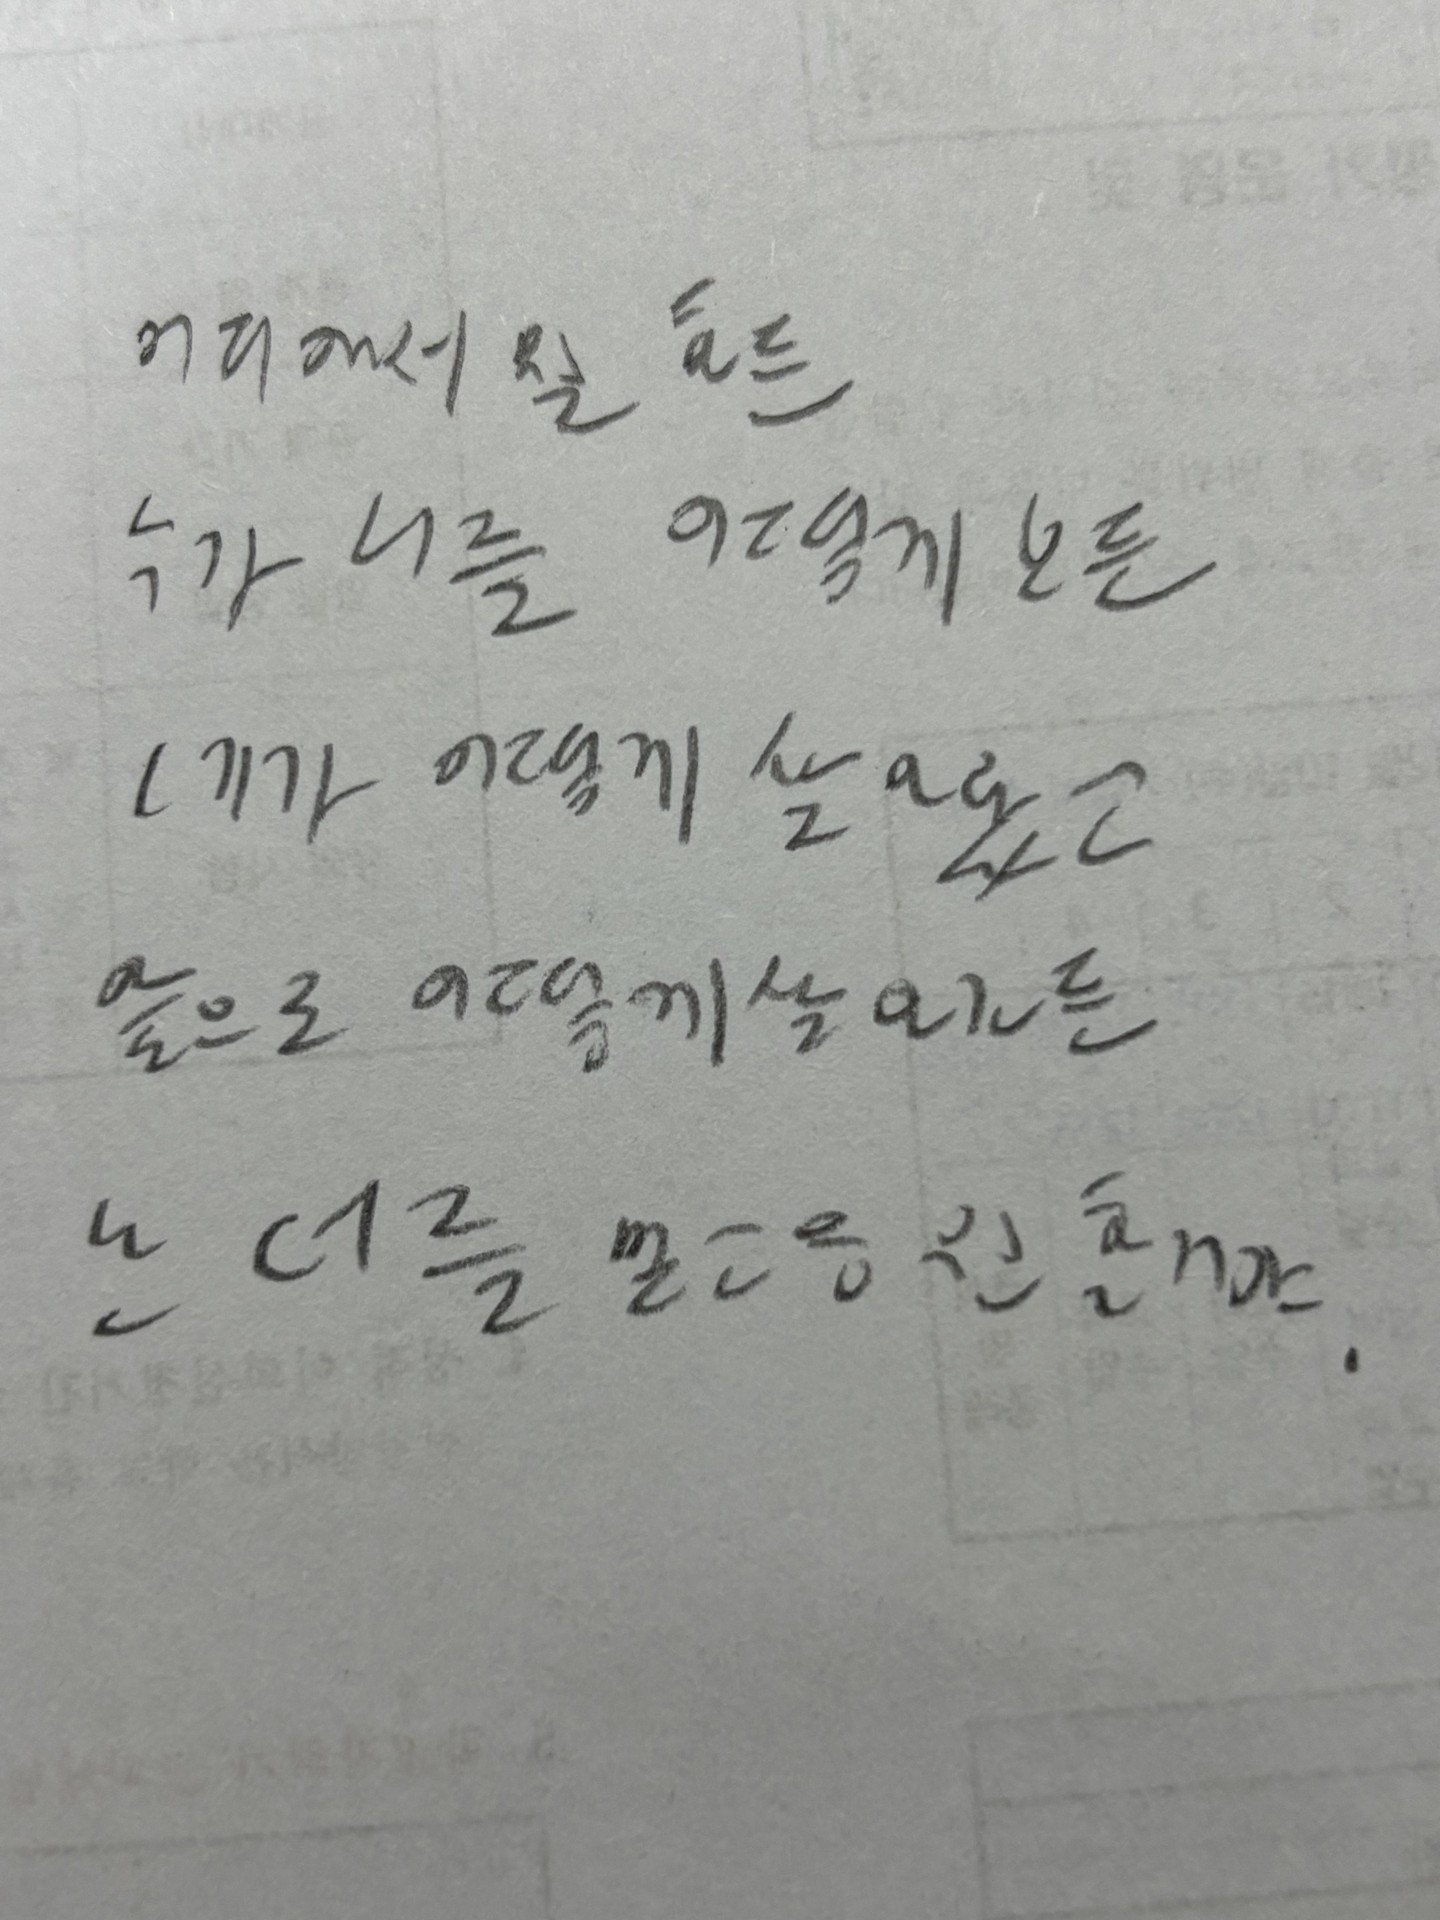 어디에서 뭘 하든
누가 너를 어떻게 보든
네가 어떻게 살아왔고
앞으로 어떻게 살아가든
난 너를 믿고 응원할거야.